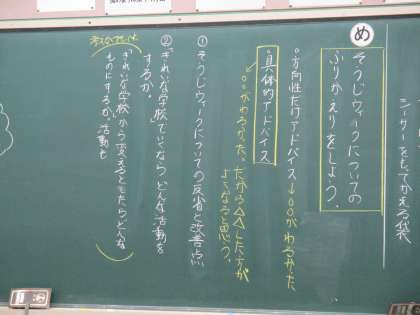 シーサーをもてかえる袋
め
そうじウィークについての
ふりかえりをしよう。
○方向性だけアドバイス↓○○がわるかった
具体的アドバイス
○○がわるかった。だから△△した方が
よくなると思う。
①そうじウィークについての反省と改善点
②"きれいな学校"でいくなら、どんな活動を
するか。
考えかたでいけば
"きれいな学校"から変えるとしたらどんな
ものにするか、活動も